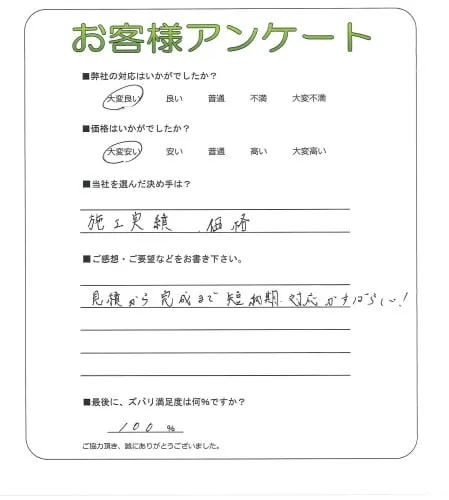 お客様アンケート
■弊社の対応はいかがでしたか？
大変良い 良い 普通 不満 大変不満
■価格はいかがでしたか？
大変安い 安い 普通 高い 大変高い
■当社を選んだ決め手は？
施工実績、価格
■ご感想・ご要望などをお書き下さい。
見積から完成まで短納期.対応がすばらしい！
■最後に、ズバリ満足度は何％ですか？
100%
ご協力頂き、誠にありがとうございました。